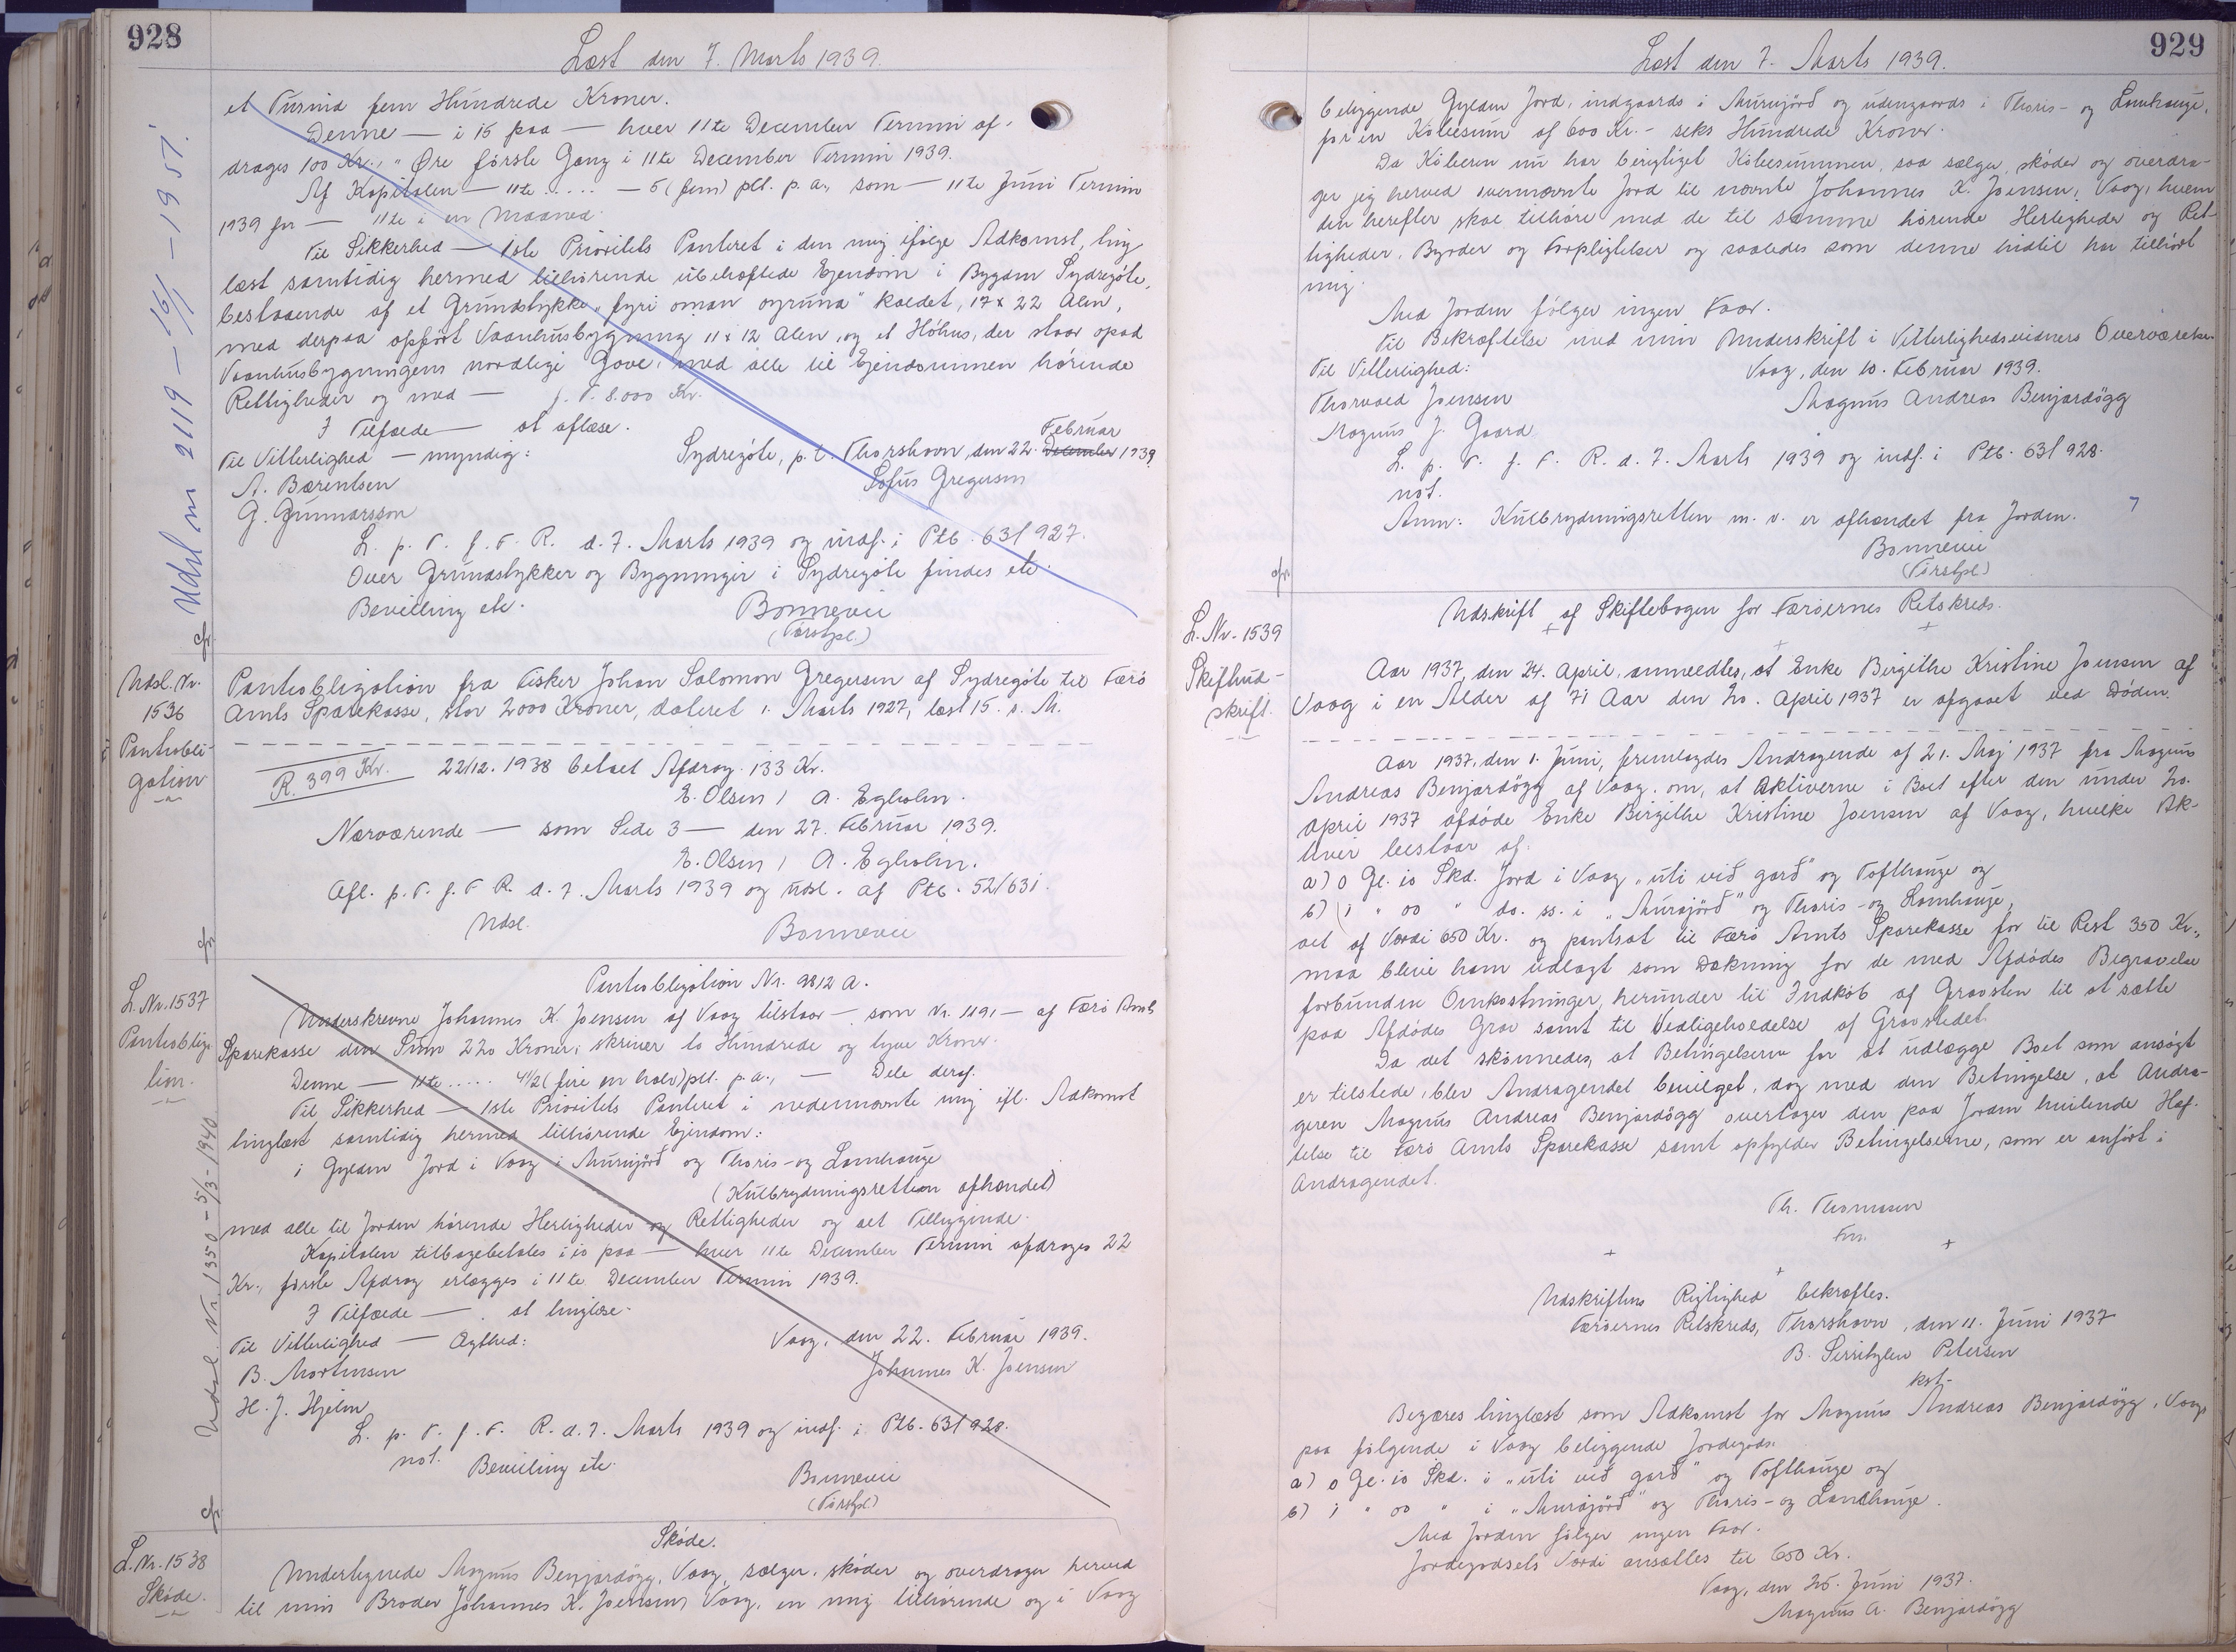 928
Læst den 7. Marts 1939.
et Tusind fem Hundrede Kroner.
Denne — i 15 paa — hver 11te December Termin af-
drages 100 Kr., " Øre første Gang i 11te December Termin 1939.
Af Kapitalen — 11te ..... — 5 (fem) pCt. p. a., som — 11te Juni Termin
1939 for — 11te i en Maaned.
Til Sikkerhed — 1ste Prioritets Panteret i den mig ifølge Adkomst, ting
læst samtidig hermed tilhørende ubehæftede Ejendom i Bygden Sydregöte,
bestaaende af et Grundstykke „fyri oman oyruna" kaldet, 17 x 22 Alen,
med derpaa opført Vaanhusbygning 11 x 12 Alen, og et Höhus, der staar opad
Vaanhusbygningens nordlige Gavl, med alle til Ejendommen hørende
Rettigheder og med — f. T. 8.000 Kr.
I Tilfælde — at aflæse.
Til Vitterlighed — myndig:
Sydregöte, p. t. Thorshavn, den 22. December Februar 1939.
A. Bærentsen
Sofus Gregersen
G. Gunnarsson
L. p. T. f. F. R. d. 7. Marts 1939 og indf. i Ptb. 63/927.
Over Grundstykker og Bygninger i Sydregöte findes etc.
Bevilling etc.
Bonnevie
(Forstpl.)
Udsl. nr. 2119 — 16/1 — 1951.
Udsl. Nr.
1536
Pantobli-
gation
Pantobligation fra Fisker Johan Salomon Gregersen af Sydregöte til Færø
Amts Sparekasse, stor 2000 Kroner, dateret 1. Marts 1927, læst 15. s. M.
R. 399 Kr.
22/12. 1938 betalt Afdrag 133 Kr.
E. Olsen / A. Egholm.
Nærværende — som Side 3 — den 27. Februar 1939.
E. Olsen / A. Egholm.
Afl. p. T. f. F. R. d. 7. Marts 1939 og udsl. af Ptb. 52/631.
Udsl.
Bonnevie
L. Nr. 1537
Pantobliga
tion.
Udsl. Nr. 1350 — 5/3 - 1940
Pantobligation Nr. 9812 A.
Underskrevne Johannes K. Joensen af Vaag tilstaar — som Nr. 1191 — af Færø Amts
Sparekasse den Sum 220 Kroner, skriver to Hundrede og tyve Kroner.
Denne — 11te ..... 4 1/2 (fire en halv) pCt. p. a., — Dele deraf.
Til Sikkerhed — 1ste Prioritets Panteret i nedennævnte mig ifl. Adkomst
tinglæst samtidig hermed tilhørende Ejendom:
i Gylden Jord i Vaag i Murujörd og Thoris- og Lamhauge
(Kulbrydningsretten afhændet)
med alle til Jorden hørende Herligheder og Rettigheder og alt Tilliggende.
Kapitalen tilbagebetales i 10 paa — hver 11te December Termin afdrages 22
Kr., første Afdrag erlægges i 11te December Termin 1939.
I Tilfælde — at tinglæse.
Til Vitterlighed — Ægthed:
Vaag, den 22. Februar 1939.
B. Mortensen
Johannes K. Joensen
H. J. Hjelm
L. p. T. f. F. R. d. 7. Marts 1939 og indf. i Ptb. 63/928.
not.
Bevilling etc.
Bonnevie
(Forstpl.)
L. Nr. 1538
Skøde.
Skøde.
Undertegnede Magnus Benjardögg, Vaag, sælger, skøder og overdrager herved
til min Broder Johannes K. Joensen, Vaag, en mig tilhørende og i Vaag
929
Læst den 7. Marts 1939.
beliggende Gylden Jord, indgaards i Murujörd og udengaards i Thoris- og Lamhauge,
for en Købesum af 600 Kr. - seks Hundrede Kroner.
Da Køberen nu har berigtiget Købesummen, saa sælger, skøder og overdra-
ger jeg herved ovennævnte Jord til nævnte Johannes K. Joensen, Vaag, hvem
den herefter skal tilhøre med de til samme hørende Herligheder og Ret-
tigheder, Byrder og Forpligtelser og saaledes som denne hidtil har tilhørt
mig.
Med Jorden følger ingen Faar.
Til Bekræftelse med min Underskrift i Vitterlighedsvidners Overværelse.
Til Vitterlighed:
Vaag, den 10. Februar 1939.
Thorvald Joensen
Magnus Andreas Benjardögg
Magnus J. Gaard
L. p. T. f. F. R. d. 7. Marts 1939 og indf. i Ptb. 63/928.
not.
Anm: Kulbrydningsretten m. v. er afhændet fra Jorden.
Bonnevie
(Forstpl.)
L. Nr. 1539
Skifteud-
skrift.
Udskrift af Skiftebogen for Færøernes Retskreds.
Aar 1937, den 24. April, anmeldtes, at Enke Birgithe Kristine Joensen af
Vaag i en Alder af 71 Aar den 20. April 1937 er afgaaet ved Døden.
Aar 1937, den 1. Juni, fremlagdes Andragende af 21. Maj 1937 fra Magnus
Andreas Benjardögg af Vaag, om, at Aktiverne i Boet efter den under 20.
April 1937 afdøde Enke Birgithe Kristine Joensen af Vaag, hvilke Ak-
tiver bestaar af:
a) 0 Gl. 10 Skd. Jord i Vaag „uti við gard" og Tofthauge og
b) 1 " 00 " do. ss. i „Murujörð" og Thoris- og Lamhauge,
alt af Værdi 650 Kr. og pantsat til Færø Amts Sparekasse for til Rest 350 Kr.,
maa blive ham udlagt som Dækning for de med Afdødes Begravelse
forbundne Omkostninger, herunder til Indkøb af Gravsten til at sætte
paa Afdødes Grav samt til Vedligeholdelse af Gravstedet.
Da det skønnedes, at Betingelserne for at udlægge Boet som ansøgt
er tilstede, blev Andragendet bevilget, dog med den Betingelse, at Andra-
geren Magnus Andreas Benjardögg overtager den paa Jorden hvilende Hæf-
telse til Færø Amts Sparekasse samt opfylder Betingelserne, som er anført i
Andragendet.
Th. Thomsen
Fm.
Udskriftens Rigtighed bekræftes.
Færøernes Retskreds, Thorshavn, den 11. Juni 1937
B. Petersen
kst.
Begæres tinglæst som Adkomst for Magnus Andreas Benjardögg, Vaag,
paa følgende i Vaag beliggende Jordegods:
a) 0 Gl. 10 Skd. i „uti við gard" og Tofthauge og
b) 1 " 00 " i „Murujörð" og Thoris- og Lamhauge.
Med Jorden følger ingen Faar.
Jordegodsets Værdi ansættes til 650 Kr.
Vaag, den 25. Juni 1937.
Magnus A. Benjardögg